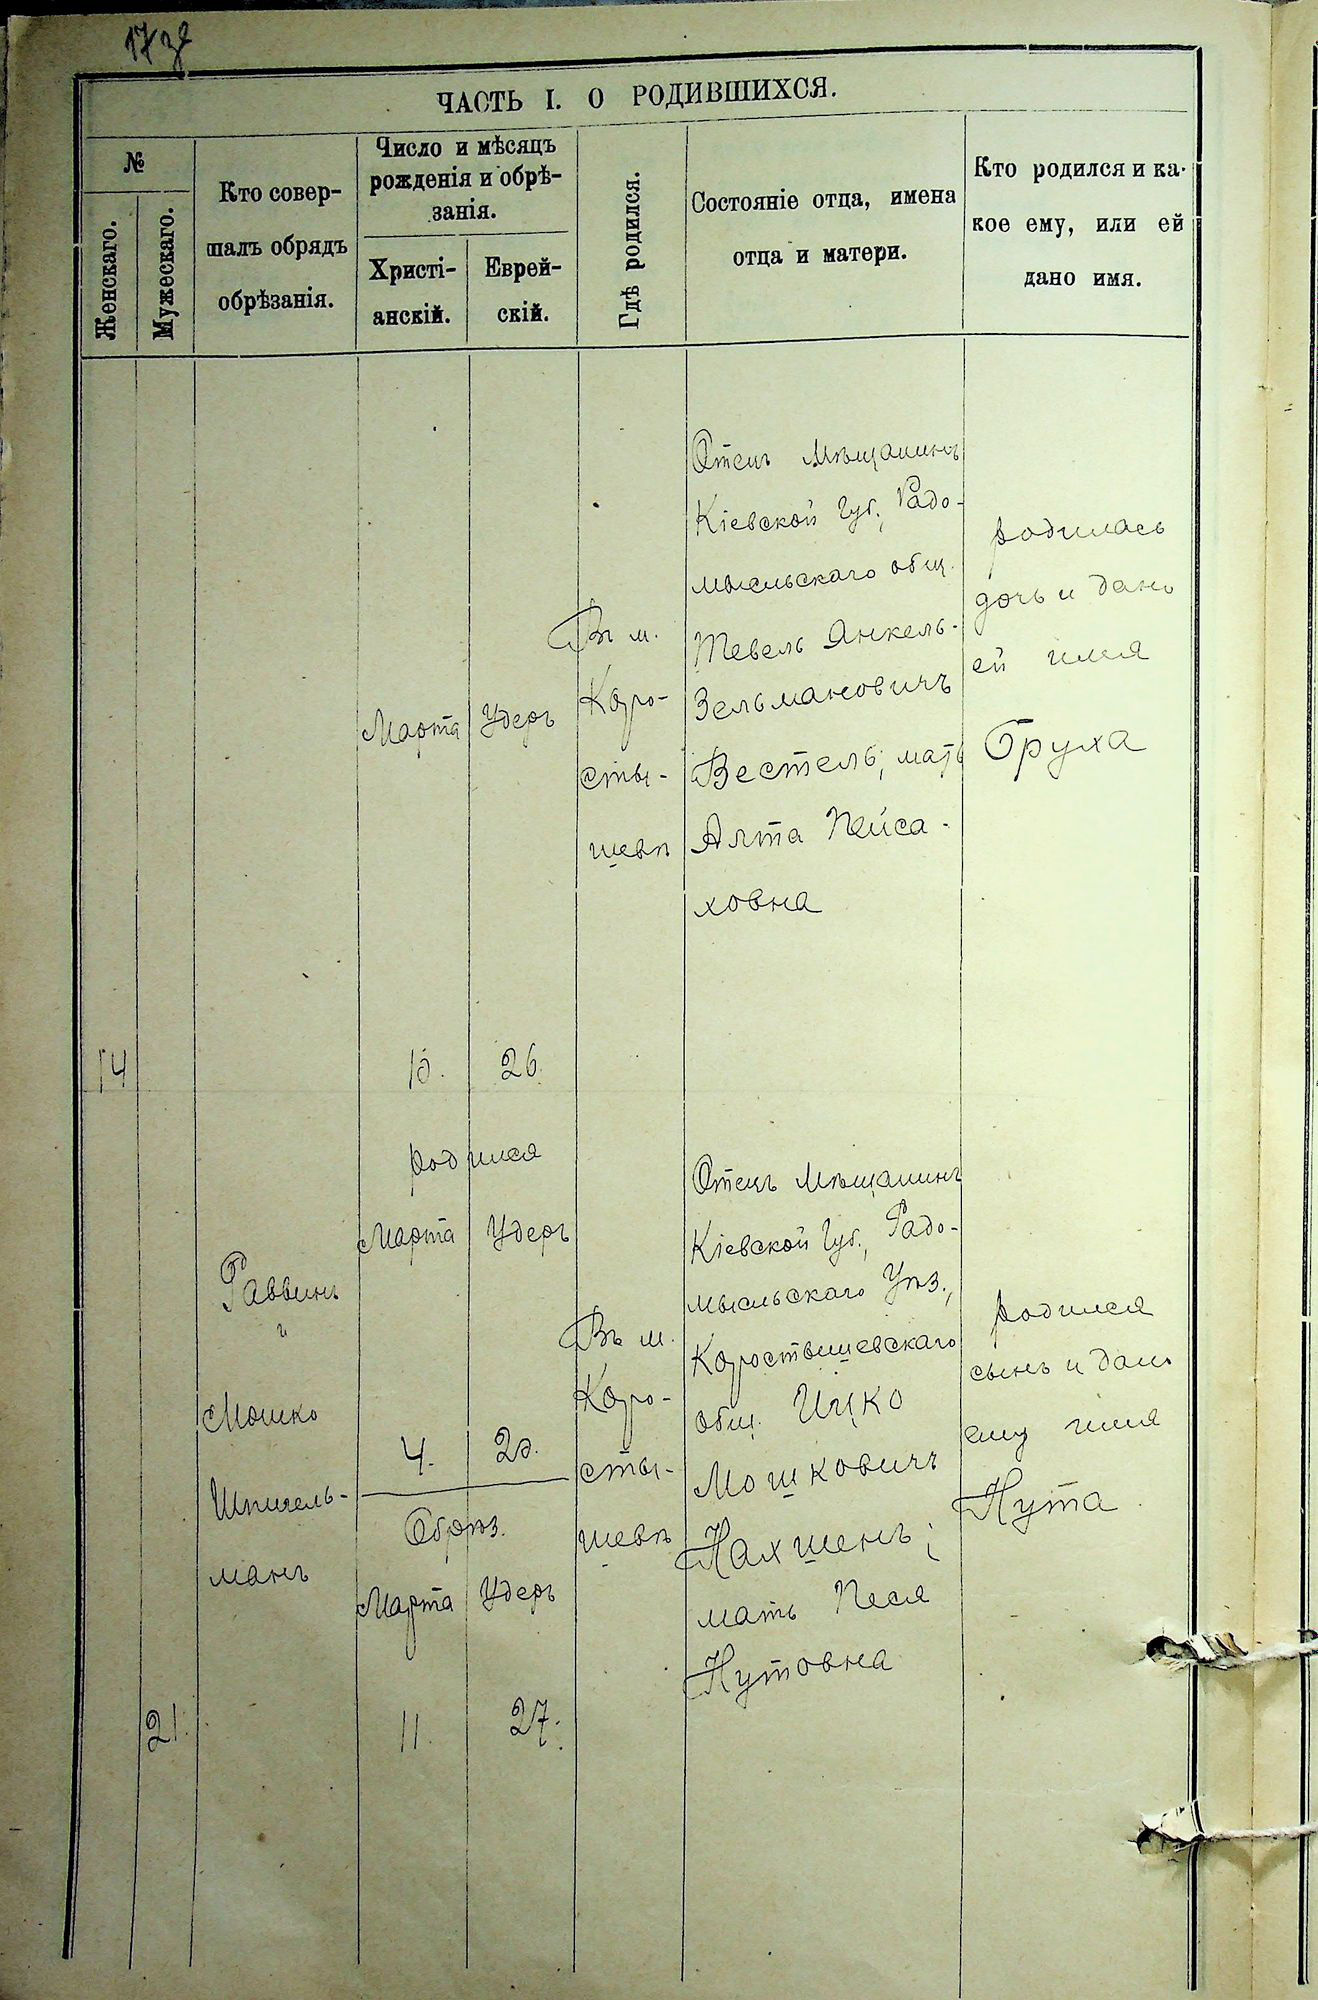 ЧАСТЬ I. О РОДИВШИХСЯ.
№
Женскаго.
Мужескаго.
Кто совер-
шалъ обрядъ
обрѣзанія.
Число и мѣсяцъ
рожденія и обрѣ-
занія.
Христі-
анскій.
Еврей-
скій.
Гдѣ родился.
Состояніе отца, имена
отца и матери.
Кто родился и ка-
кое ему, или ей
дано имя.
14
Марта
Удеръ
26.
Въ м.
Коро-
сты-
шевѣ
Отецъ Мѣщанинъ
Кіевской Губ., Радо-
мысльскаго общ.
Тевель Янкель-
Зельмановичъ
Вестель; мать
Алта Пейса-
ховна
родилась
дочь и дано
ей имя
Бруха
21.
Раввинъ
и
Мошко
Шпигель-
манъ
родился
Марта
Удеръ
4.
20.
Обрѣз.
Марта
Удеръ
11.
27.
Въ м.
Коро-
сты-
шевѣ
Отецъ Мѣщанинъ
Кіевской Губ., Радо-
мысльскаго Уѣз.,
Коростышевскаго
общ. Ицко
Мошковичъ
Нахшенъ;
мать Песя
Нутовна
родился
сынъ и дано
ему имя
Нута